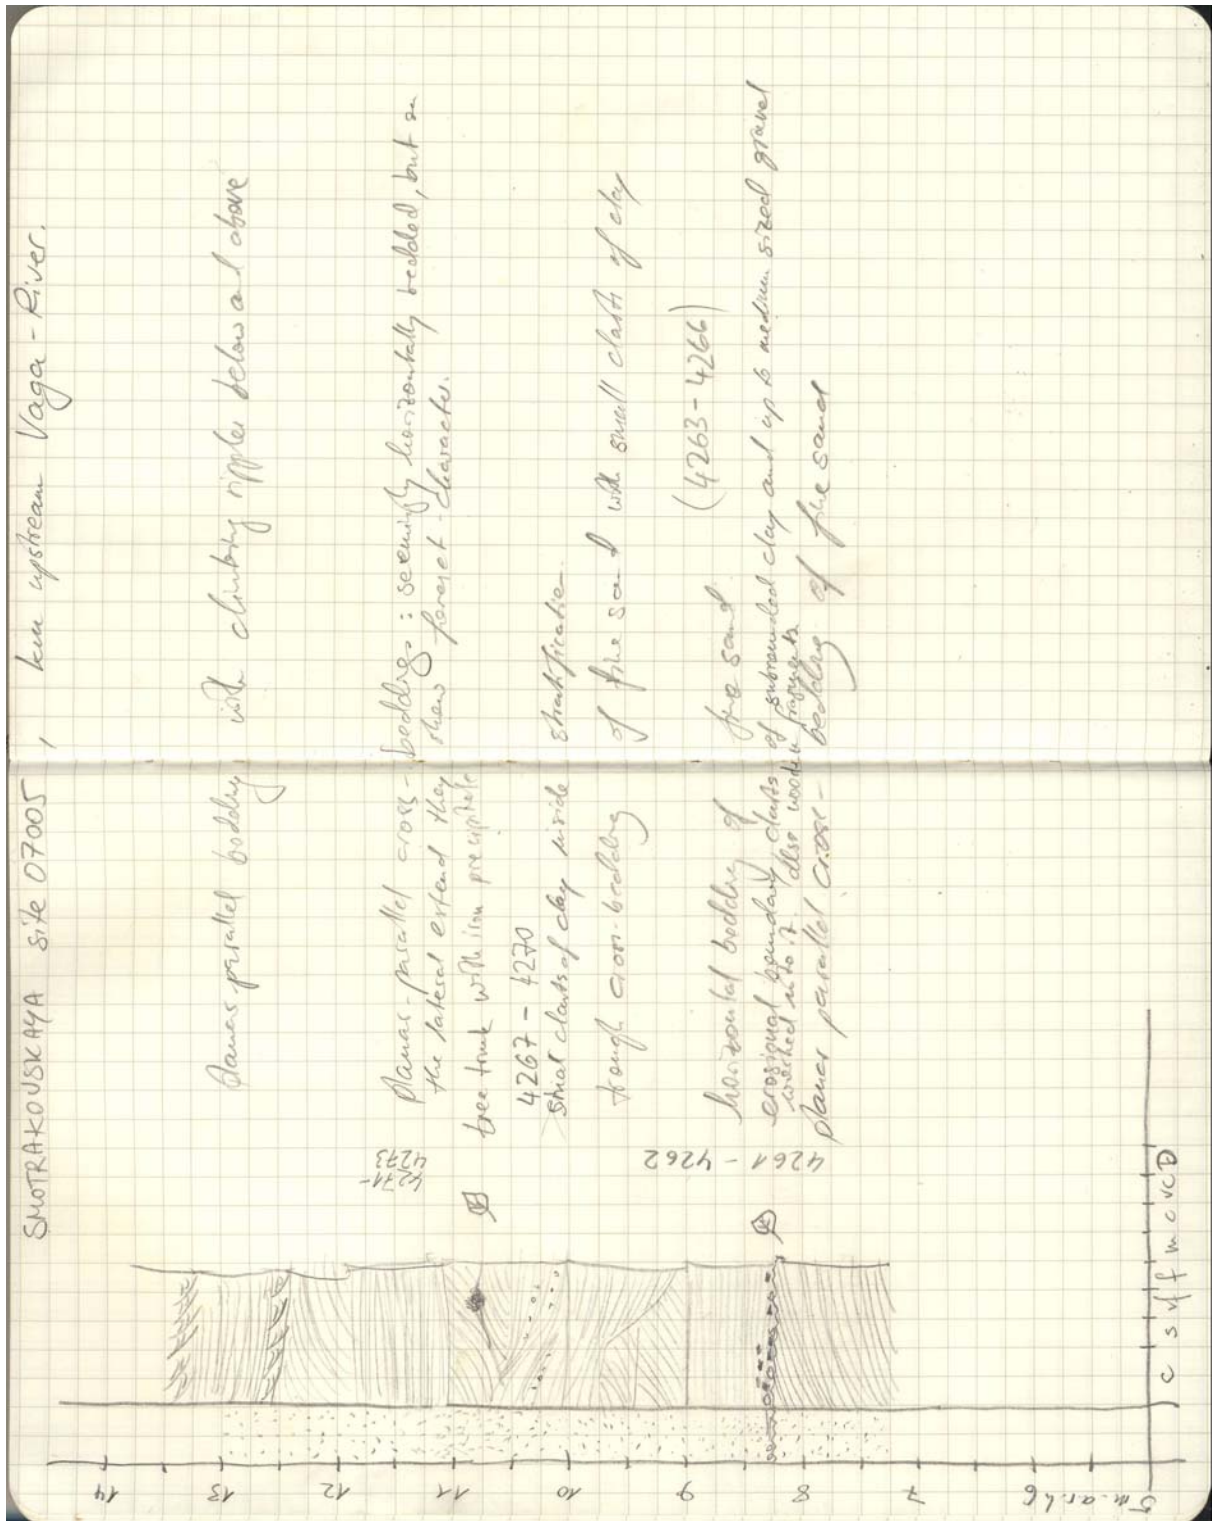 SMOTRAKOVSKAYA site 07005, km upstream Vaga-River.
planar-parallel bedding with climbing ripples below and above
4271-
4273
planar-parallel cross-beddings: seemingly horizontally bedded, but on
the lateral extend they show foreset-character.
tree trunk with iron precipitate
4267 - 4270
small clasts of clay inside stratification
trough cross-bedding of fine sand with small clasts of clay
horizontal bedding of fine sand (4263-4266)
erosional boundary, clasts of subrounded clay and up to medium sized gravel
washed into it. also wooden fragments
planar parallel cross-bedding of fine sand
4261 - 4262
14
13
12
11
10
9
8
7
6
5 m.a.r.l.
c s vf f m c vc D